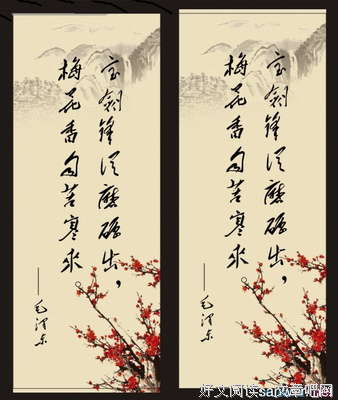 宝剑锋从磨砺出，
梅花香自苦寒来。
——毛泽东
宝剑锋从磨砺出，
梅花香自苦寒来。
——毛泽东
好文阅读 章吧网